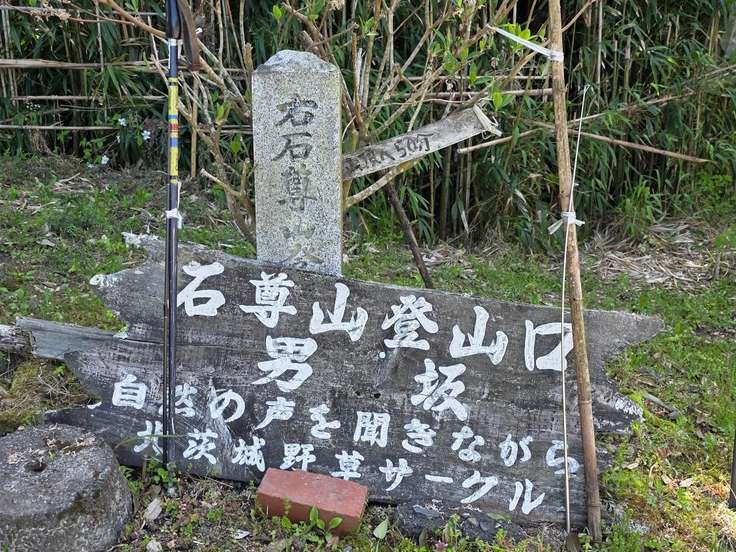 右石尊山
50分
石尊山登山口
男坂
自然の声を聞きながら
北茨城野草サークル